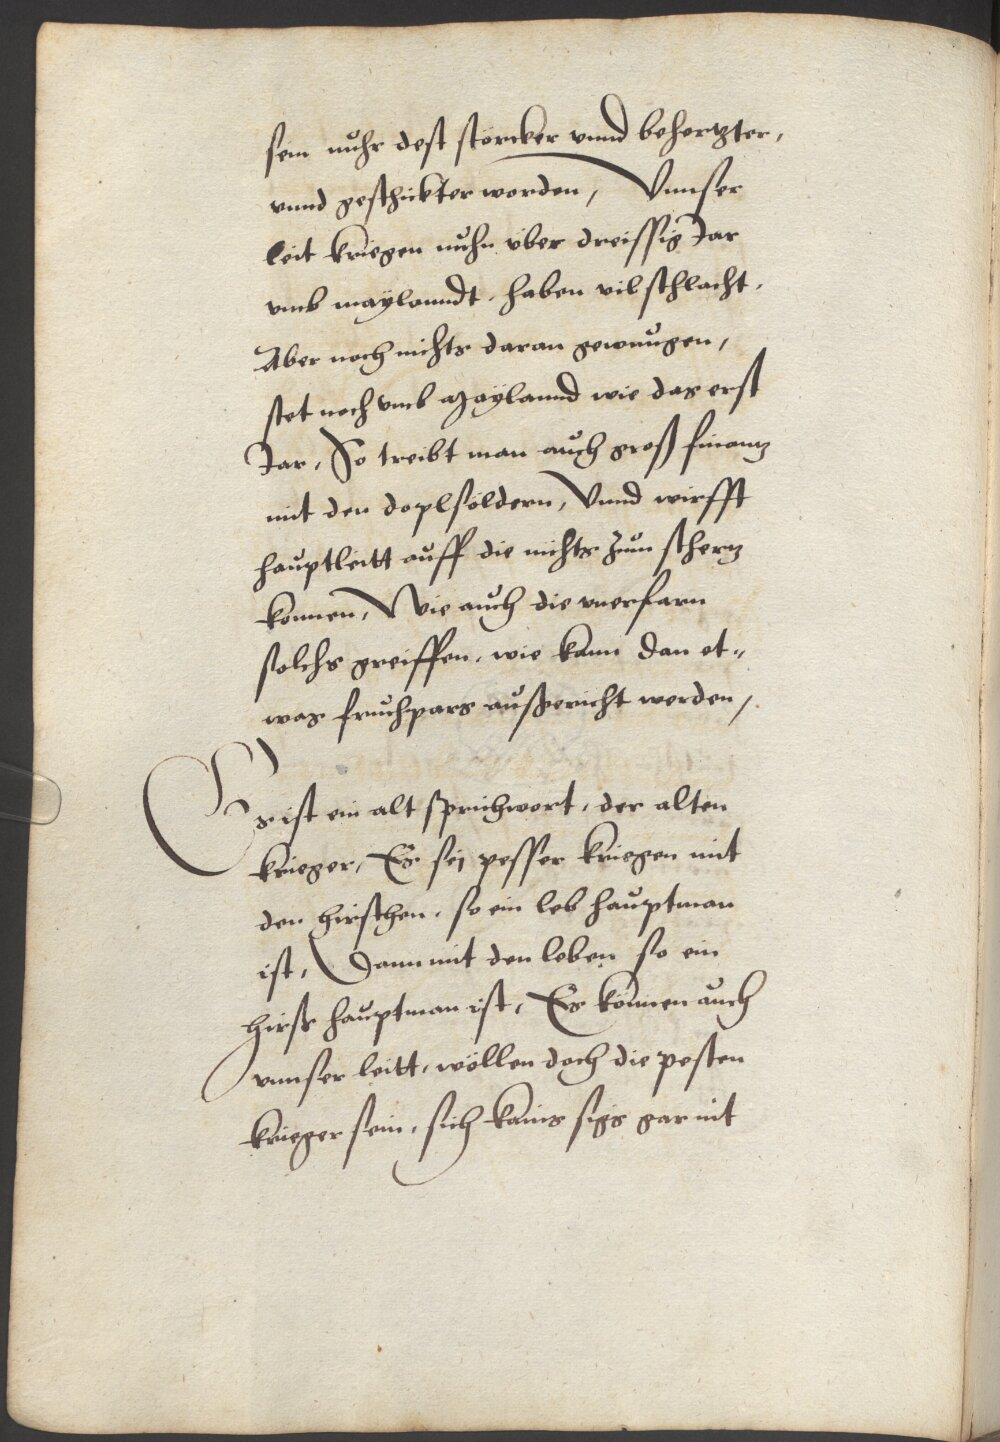 sein nuhr dest störcker vnnd behertzter,
vnnd geschickter worden, Vnnser
leit kriegen nuhn über dreissig Jar
vmb maylanndt. haben vil schlacht.
Aber noch nichts daran gewnugen,
stet noch vmb Maylannd wie das erst
Jar, So treibt man auch groß finantz
mit den doplsöldern, Vnnd wirfft
hauptleitt auff die nichts zum schertz
konnen, Wie auch die vnerfarn
solchs greiffen, wie kann dan et„
was fruchpars außgericht werden,
Es ist ein alt sprichwort, der alten
krieger, Es sei pesser kriegen mit
den hirschen, so ein leb hauptman
ist, Dann mit den leben so ein
hirsh hauptman ist, Es können auch
vnnser leitt, wöllen doch die pesten
krieger sein, sich kains sigs gar nit